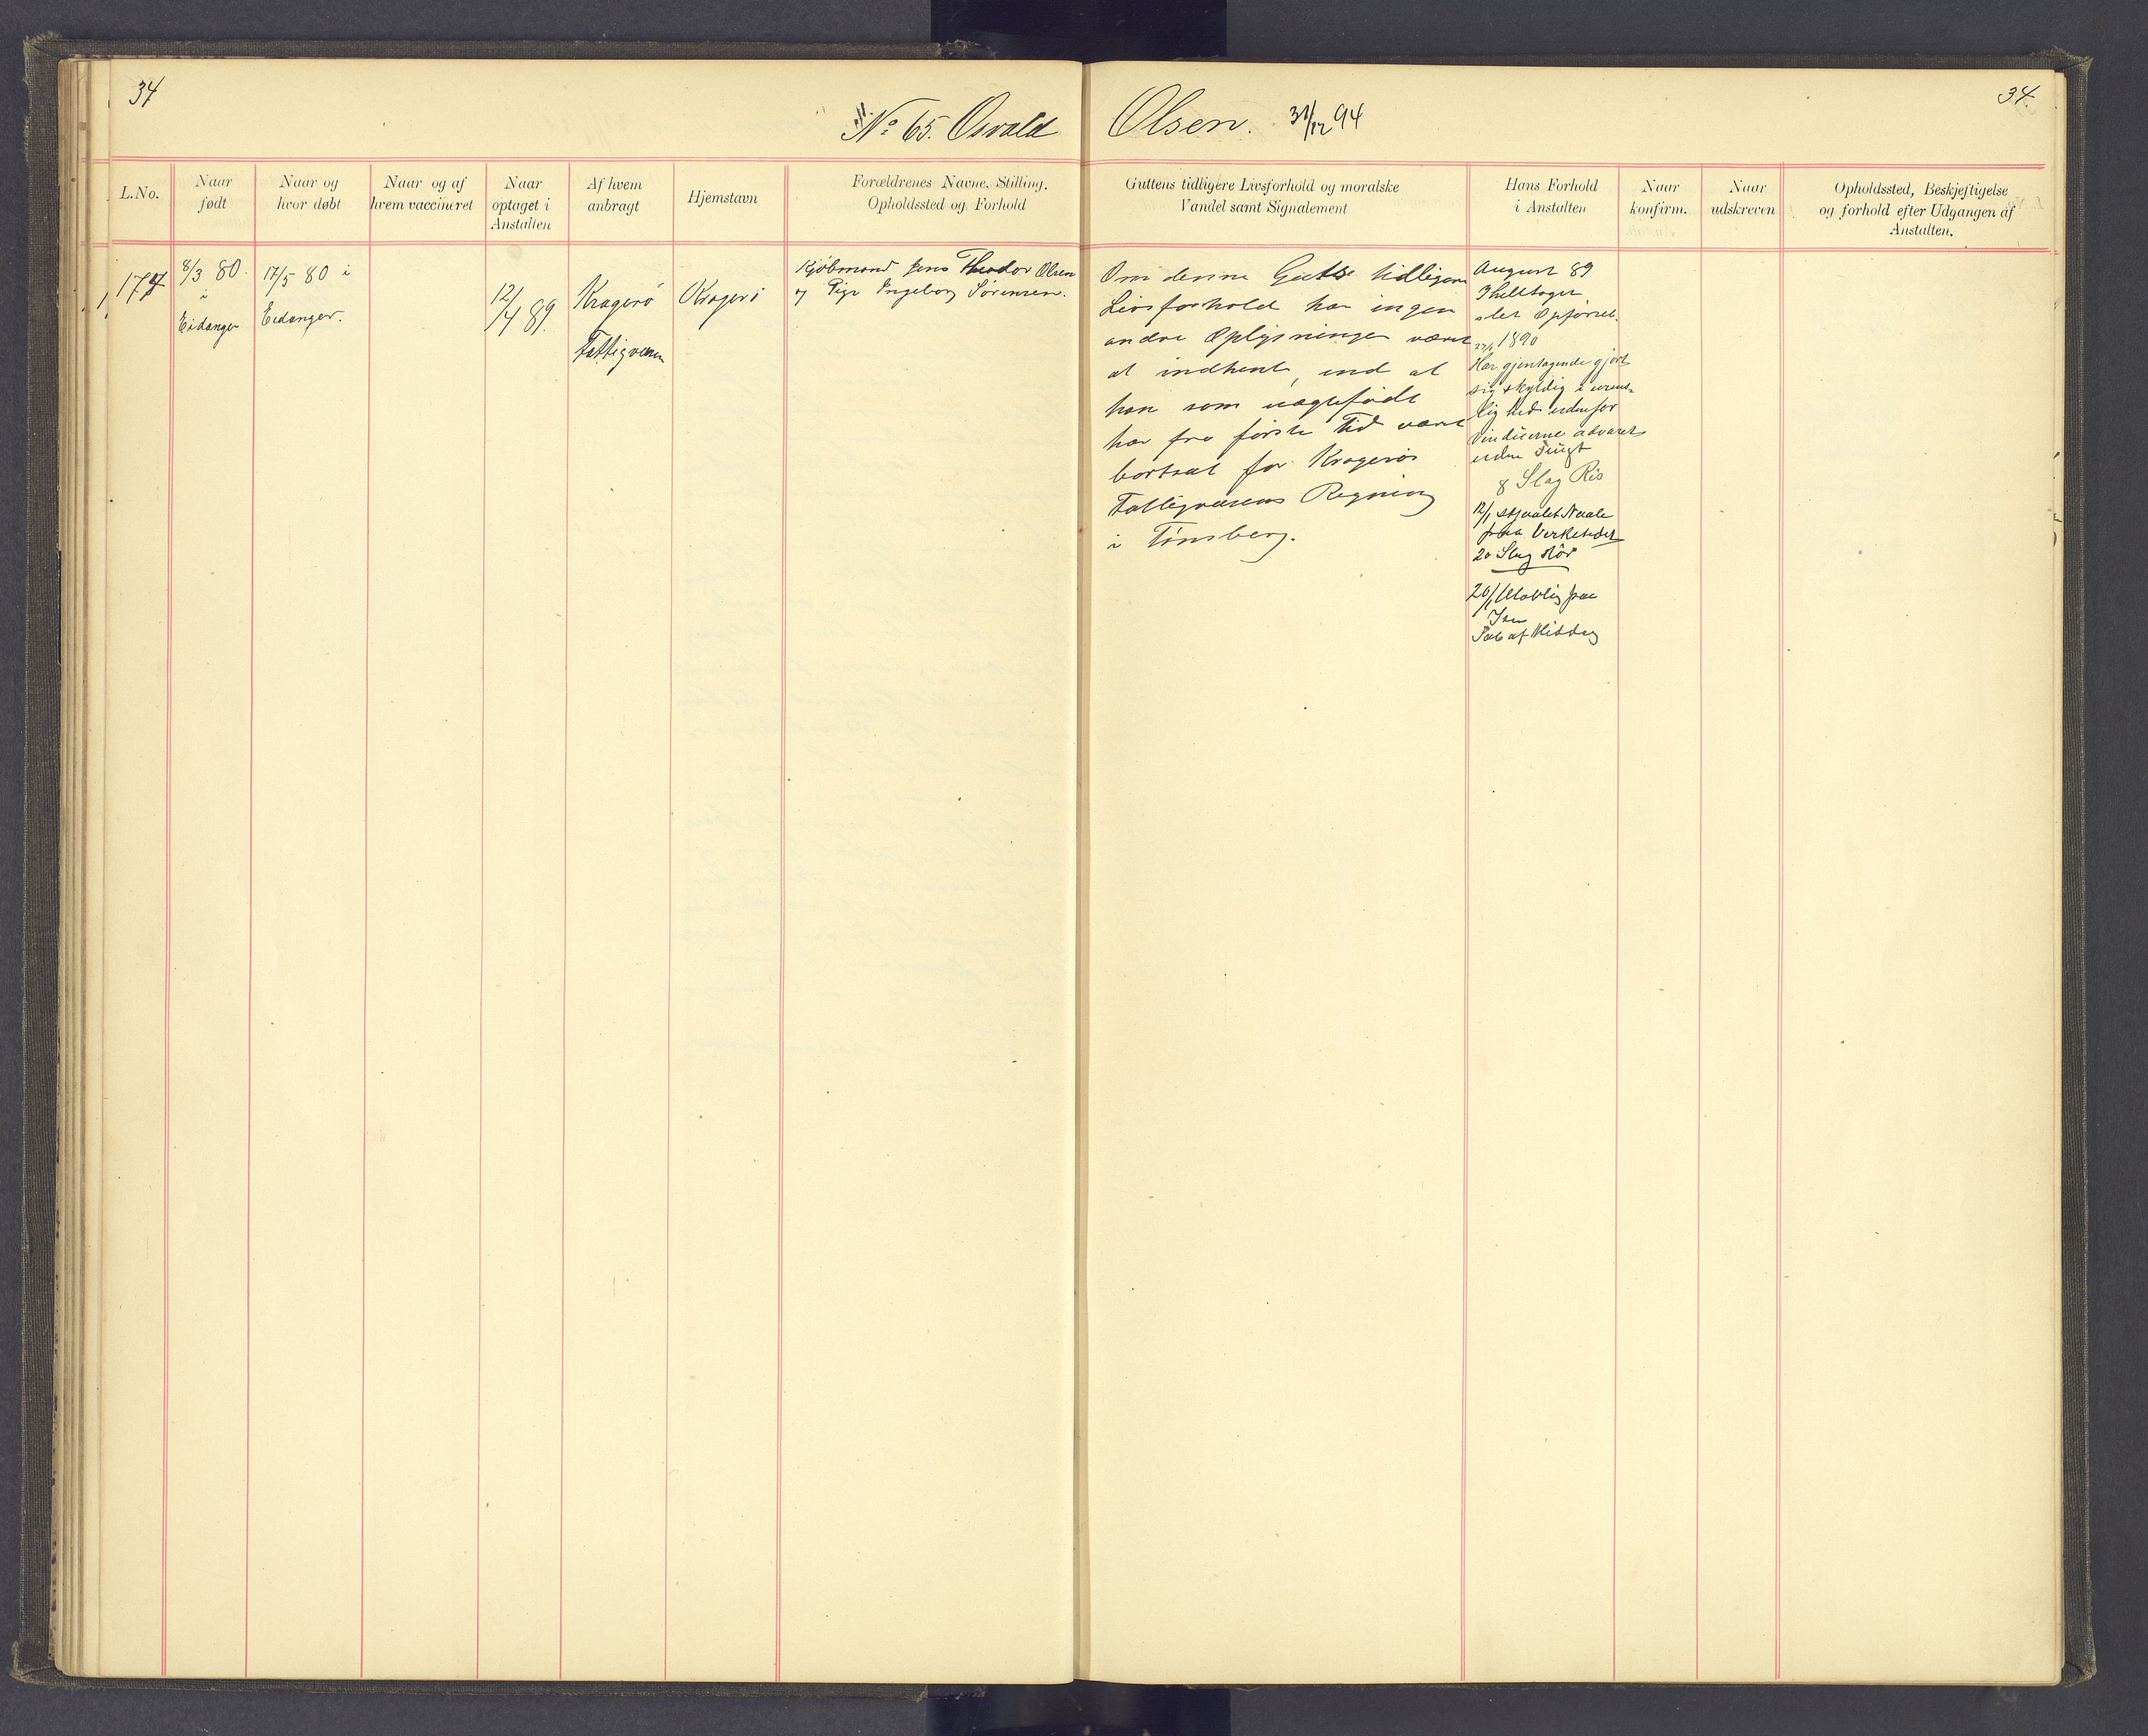 34
34.
No 65. Osvald Olsen. 31/12 94
L.No.
Naar
født
Naar og
hvor døbt
Naar og af
hvem vaccineret
Naar
optaget i
Anstalten
Af hvem
anbragt
Hjemstavn
Forældrenes Navne, Stilling,
Opholdssted og Forhold
Guttens tidligere Livsforhold og moralske
Vandel samt Signalement
Hans Forhold
i Anstalten
Naar
konfirm.
Naar
udskreven
Opholdssted, Beskjeftigelse
og forhold efter Udgangen af
Anstalten.
174
8/3 80.
i
Eidanger
17/5 80 i
Eidanger.
12/
/4 89.
Kragerö
Fattigvæsen
Kragerö
Kjöbmand Jens Theodor Olsen
og Pige Ingeborg Sörensen.
Om denne Guts tidligere
Livsforhold har ingen
andre Oplysninger været
at indhente, end at
han som uægtefödt
har fra förste Tid været
bortsat for Kragerös
Fattigvæsens Regning
i Tönsberg.
August 89
slet Opförsel.
1890
Har gjentagende gjort
sig skyldig i urens-
lighed udenfor
Vinduerne advaret
uden Frugt
8 Slag Ris
12/1 stjaalet Naale
paa Verkstedet
20 Slag Rör
20/1 Ulovlig paa
Isen
Tab af Middag